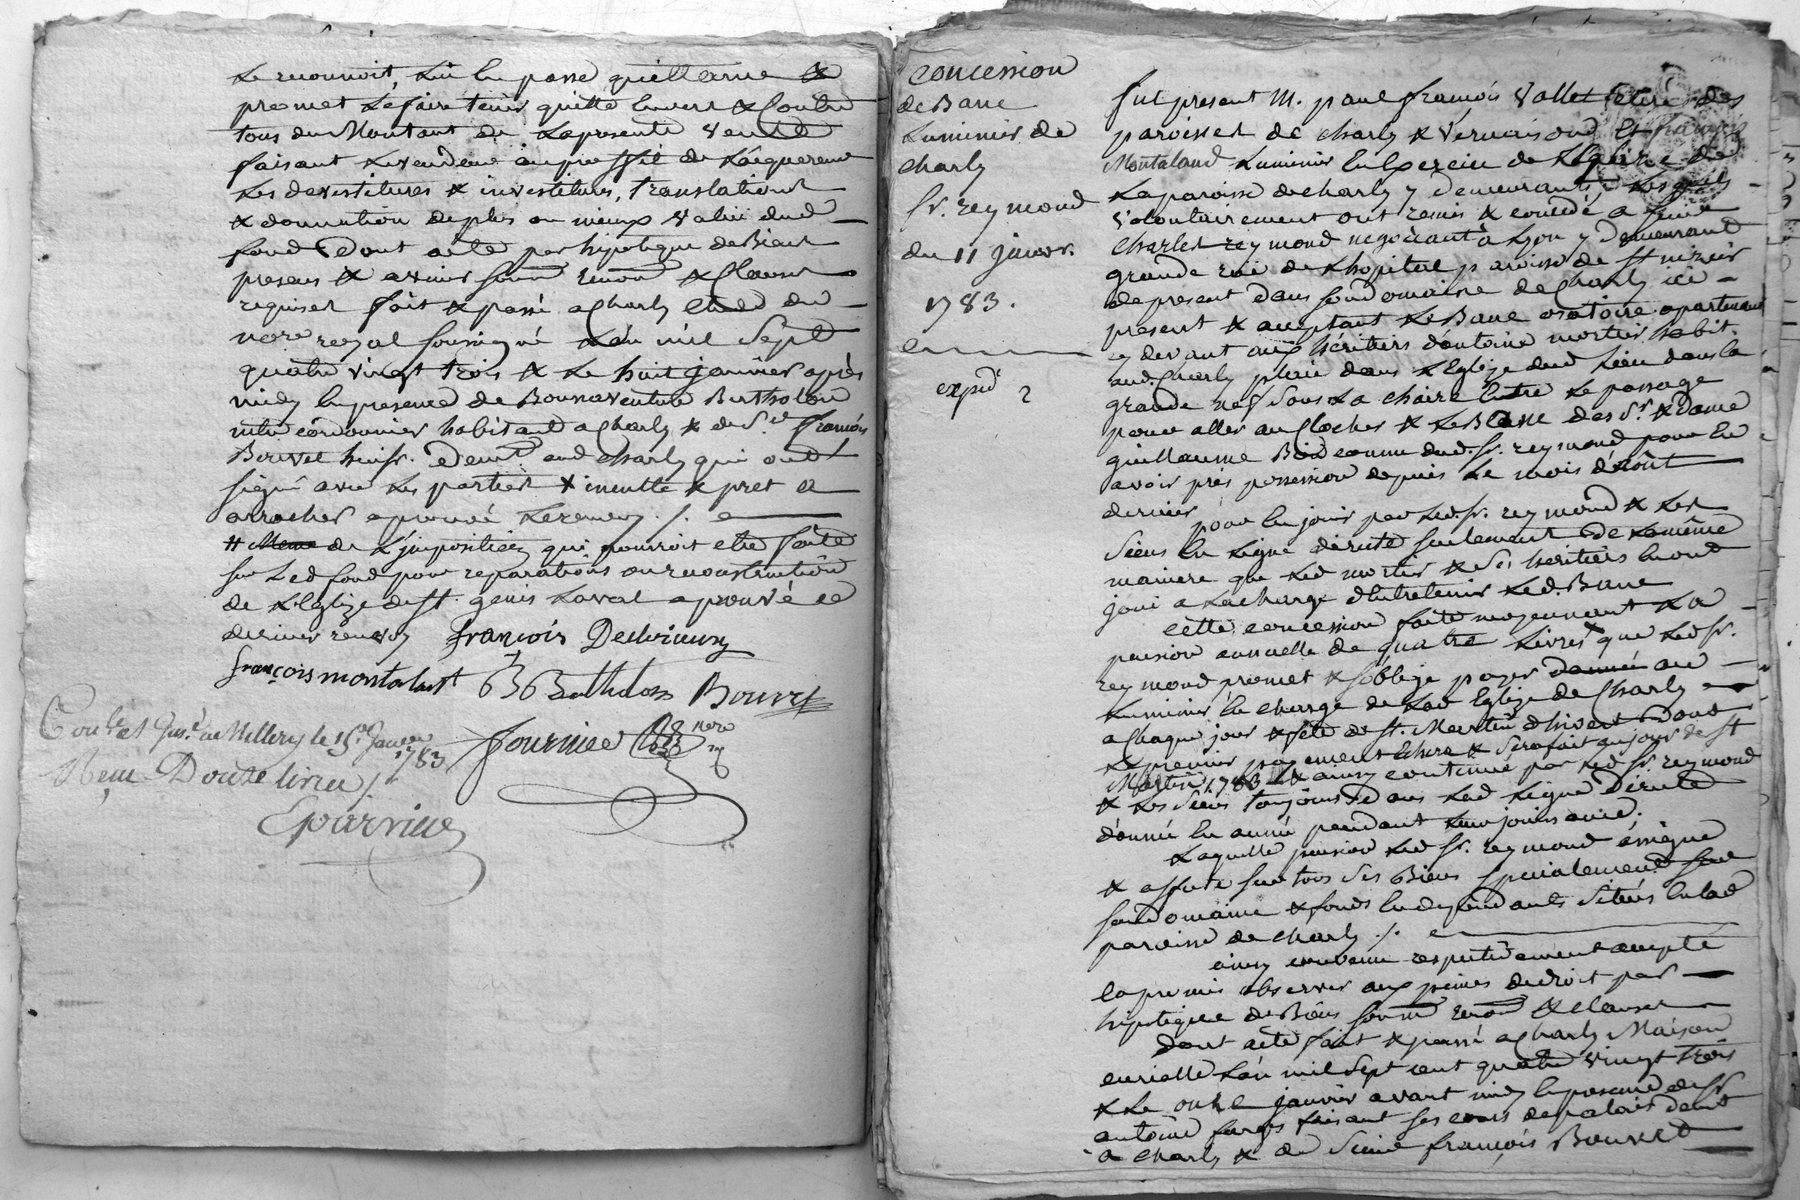 le reconnoit, lui en passe quittance &
promet le faire tenir quitte envers & Contre
tous du Montant de la presente vente
faisant le vendeur au proffit de l'acquereur
les devestitures & investitures, translations
& donnation de plus ou mieux value dud
fond Dont acte par hipoteque de Biens
presens & avenir soum renon & Clauses
requises fait & passé a Charly Etude du
nore royal soussigné l'an mil sept
quatre vingt trois & le huit janvier après
midy en presence de Bonnaventure Bertholon
mtre cordonnier habitant a Charly & de Sr François
Bouvet huissr. demt aud Charly qui ont
signé avec les parties
arracher aprouvé le renvoy ./.
de l'imposition qui pourroit etre faite
sur led fond pour reparations ou reconstruction
de l'Eglize de St. genis Laval aprouvé ce
dernier renvoy françois Desvieux
françois montaland B Bertholon Bouvet
fournier nore
Con.lé & Ins.é a Millery le 15e Janvier 1783
Reçu Douze livres
Eparvier
concession
de Banc
Luminier de
charly
Sr. reymond
du 11 janvr.
1783.
expdé
fut present M. paul françois vallet curé des
paroisses de charly & vernaison et françois
Montaland Luminier en Exercice de l'Eglize de
la paroisse de charly y demeurants lesquels
volontairement ont remis & concedé a sieur
charles reymond negociant a Lyon y demeurant
grande rüe de l'hopital paroisse de St nizier
de present dans son domaine de Charly ici
present & acceptant le Banc oratoire apartenant
cy devant aux héritiers d'antoine mortier habit.
aud. Charly placé dans l'Eglize dud Lieu dans la
grande nef sous la chaire entre le passage
pour aller au Clocher & le Banc des Sr & Dame
guillaume Bois comme dud. Sr. reymond pour en
avoir pris possession depuis le mois d'août
dernier
pour en jouir par led. Sr. reymond & les
siens en Ligne directe seulement de la même
maniere que led mortier & ses heritiers en ont
joui a la charge d'Entretenir led. Banc
cette concession faite moyennant la
pension annuelle de quatre Livres que led Sr.
reymond promet & s'oblige payer au
Luminier en charge de lad Eglize de Charly
a Chaque jour & fête de St. Martin d'hiver dont
le premier payement Echera & sera fait au jour de St
Martin 1783 & ainsy continué par led Sr reymond
& les siens toujours dans lad Ligne Directe
d'année en année pendant leur jouissance.
Laquelle pension led Sr. reymond assigne
& affecte sur tous ses Biens specialement sur
son domaine & fonds en dependants situés en lad
paroisse de charly ./.
ainsy convenu respectivement accepté
et promis observer aux peines de droit par
hipoteque de Biens soum renon & clauses
dont acte fait & passé a Charly Maison
curialle l'an mil sept cent quatre vingt trois
& le onze janvier avant midy en presence de Sr
antoine farges faisant ses cours de palais demt
a charly & de Sieur françois Bouvet